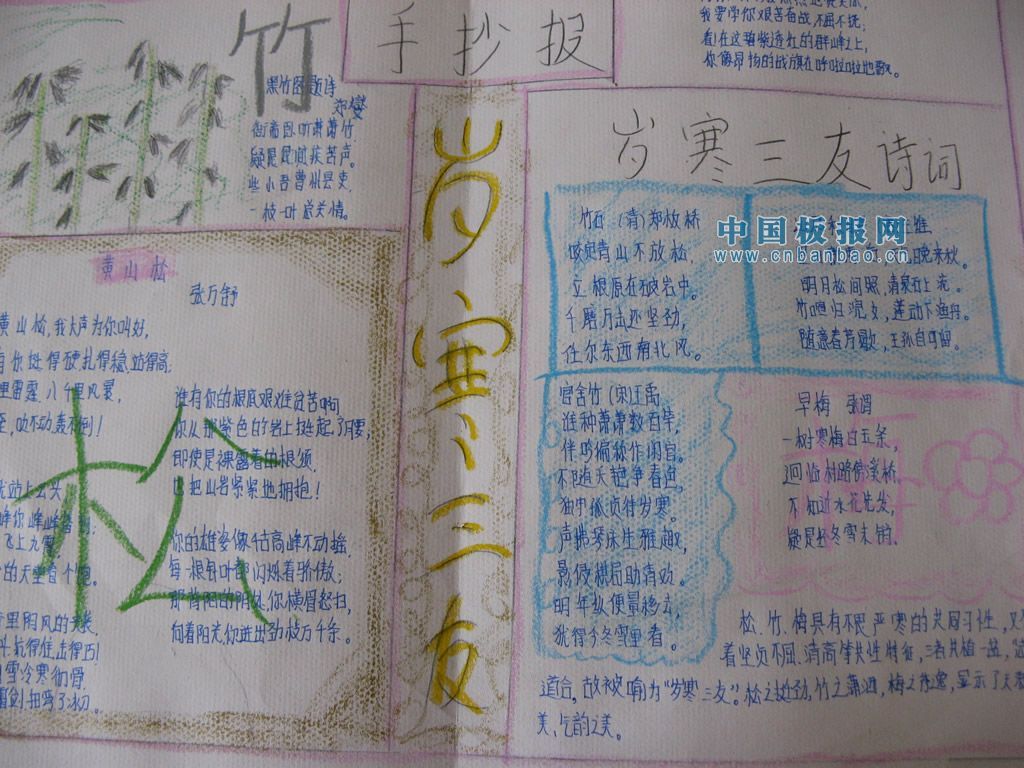 竹
手抄报
墨竹图题诗
郑燮
衙斋卧听萧萧竹
疑是民间疾苦声。
些小吾曹州县吏
一枝一叶总关情。
我要学你艰苦奋战,不屈不挠;
看!在这碧紫透红的群峰之上,
你像昂扬的战旗在呼啦啦地飘。
岁寒三友
岁寒三友诗词
竹石 (清)郑板桥
咬定青山不放松,
立根原在破岩中。
千磨万击还坚劲,
任尔东西南北风。
晚来秋。
明月松间照,清泉石上流。
竹喧归浣女,莲动下渔舟。
随意春芳歇,王孙自可留。
中国板报网
www.cnbanbao.cn
官舍竹 (宋)王禹
谁种萧萧数百竿,
伴吟偏称作闲官。
不随夭艳争春色,
独守孤贞待岁寒。
声拂琴床生雅趣,
影侵棋局助清欢。
明年纵便量移去,
犹得今冬雪里看。
早梅 张谓
一树寒梅白玉条,
迥临村路傍溪桥。
不知近水花先发,
疑是经冬雪未销。
松、竹、梅具有不畏严寒的共同习性,又
着坚贞不屈、清高等共性特征,三者共植一盆,
道合,故被喻为“岁寒三友”。松之坚劲,竹之潇洒,梅之
美、气韵之美。
黄山松
张万舒
黄山松,我大声为你叫好,
有你挺得硬,扎得稳,站得高;
里雷霆,八千里风暴,
歪,吹不动,轰不倒!
站上云头
飞上九霄
松
谁有你的根底艰难贫苦啊
你从那紫色的岩上挺起了腰,
即使是裸露着的根须,
也把山岩紧紧地拥抱!
你的雄姿像枯高峰不动摇,
每一根针叶都闪烁着骄傲;
那背阳的阴处,你横眉怒扫,
向着阳光,你迸出劲枝万千条。